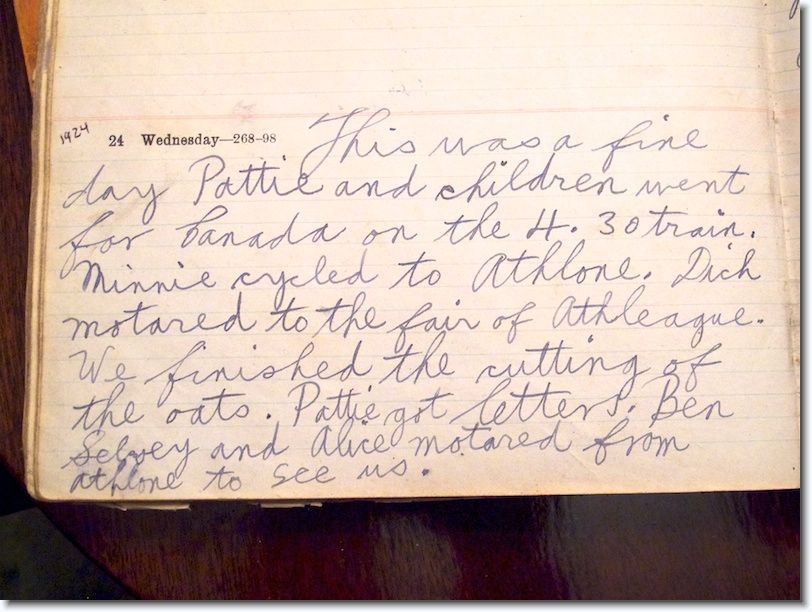 1924
24 Wednesday—268-98 This was a fine
day Pattie and children went
for Canada on the 4.30 train.
Minnie cycled to Athlone. Dick
motared to the fair of Athleague.
We finished the cutting of
the oats. Pattie got letters. Ben
Selvey and Alice motared from
athlone to see us.